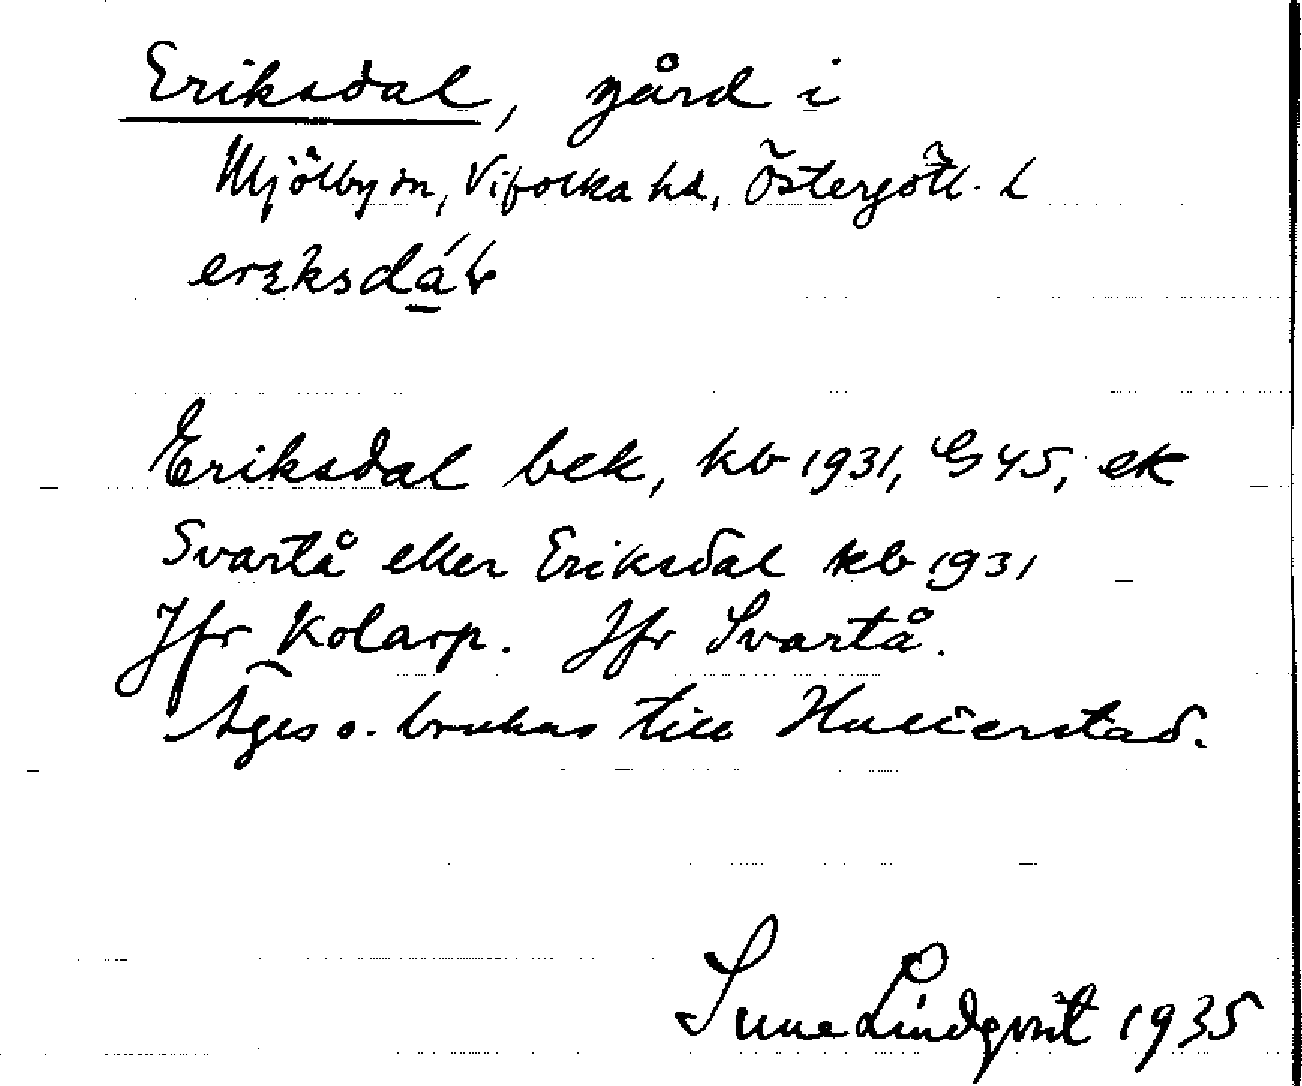 Eriksdal, gård i
Mjölby sn, Vifolka hd, Östergötl. l
Eriksdal bek, kb 1931, G 45, ek
Svartå eller Eriksdal kb 1931
Jfr Kolarp. Jfr Svartå.
Äges o. brukas till Hulterstad.
Sune Lindqvist 1935